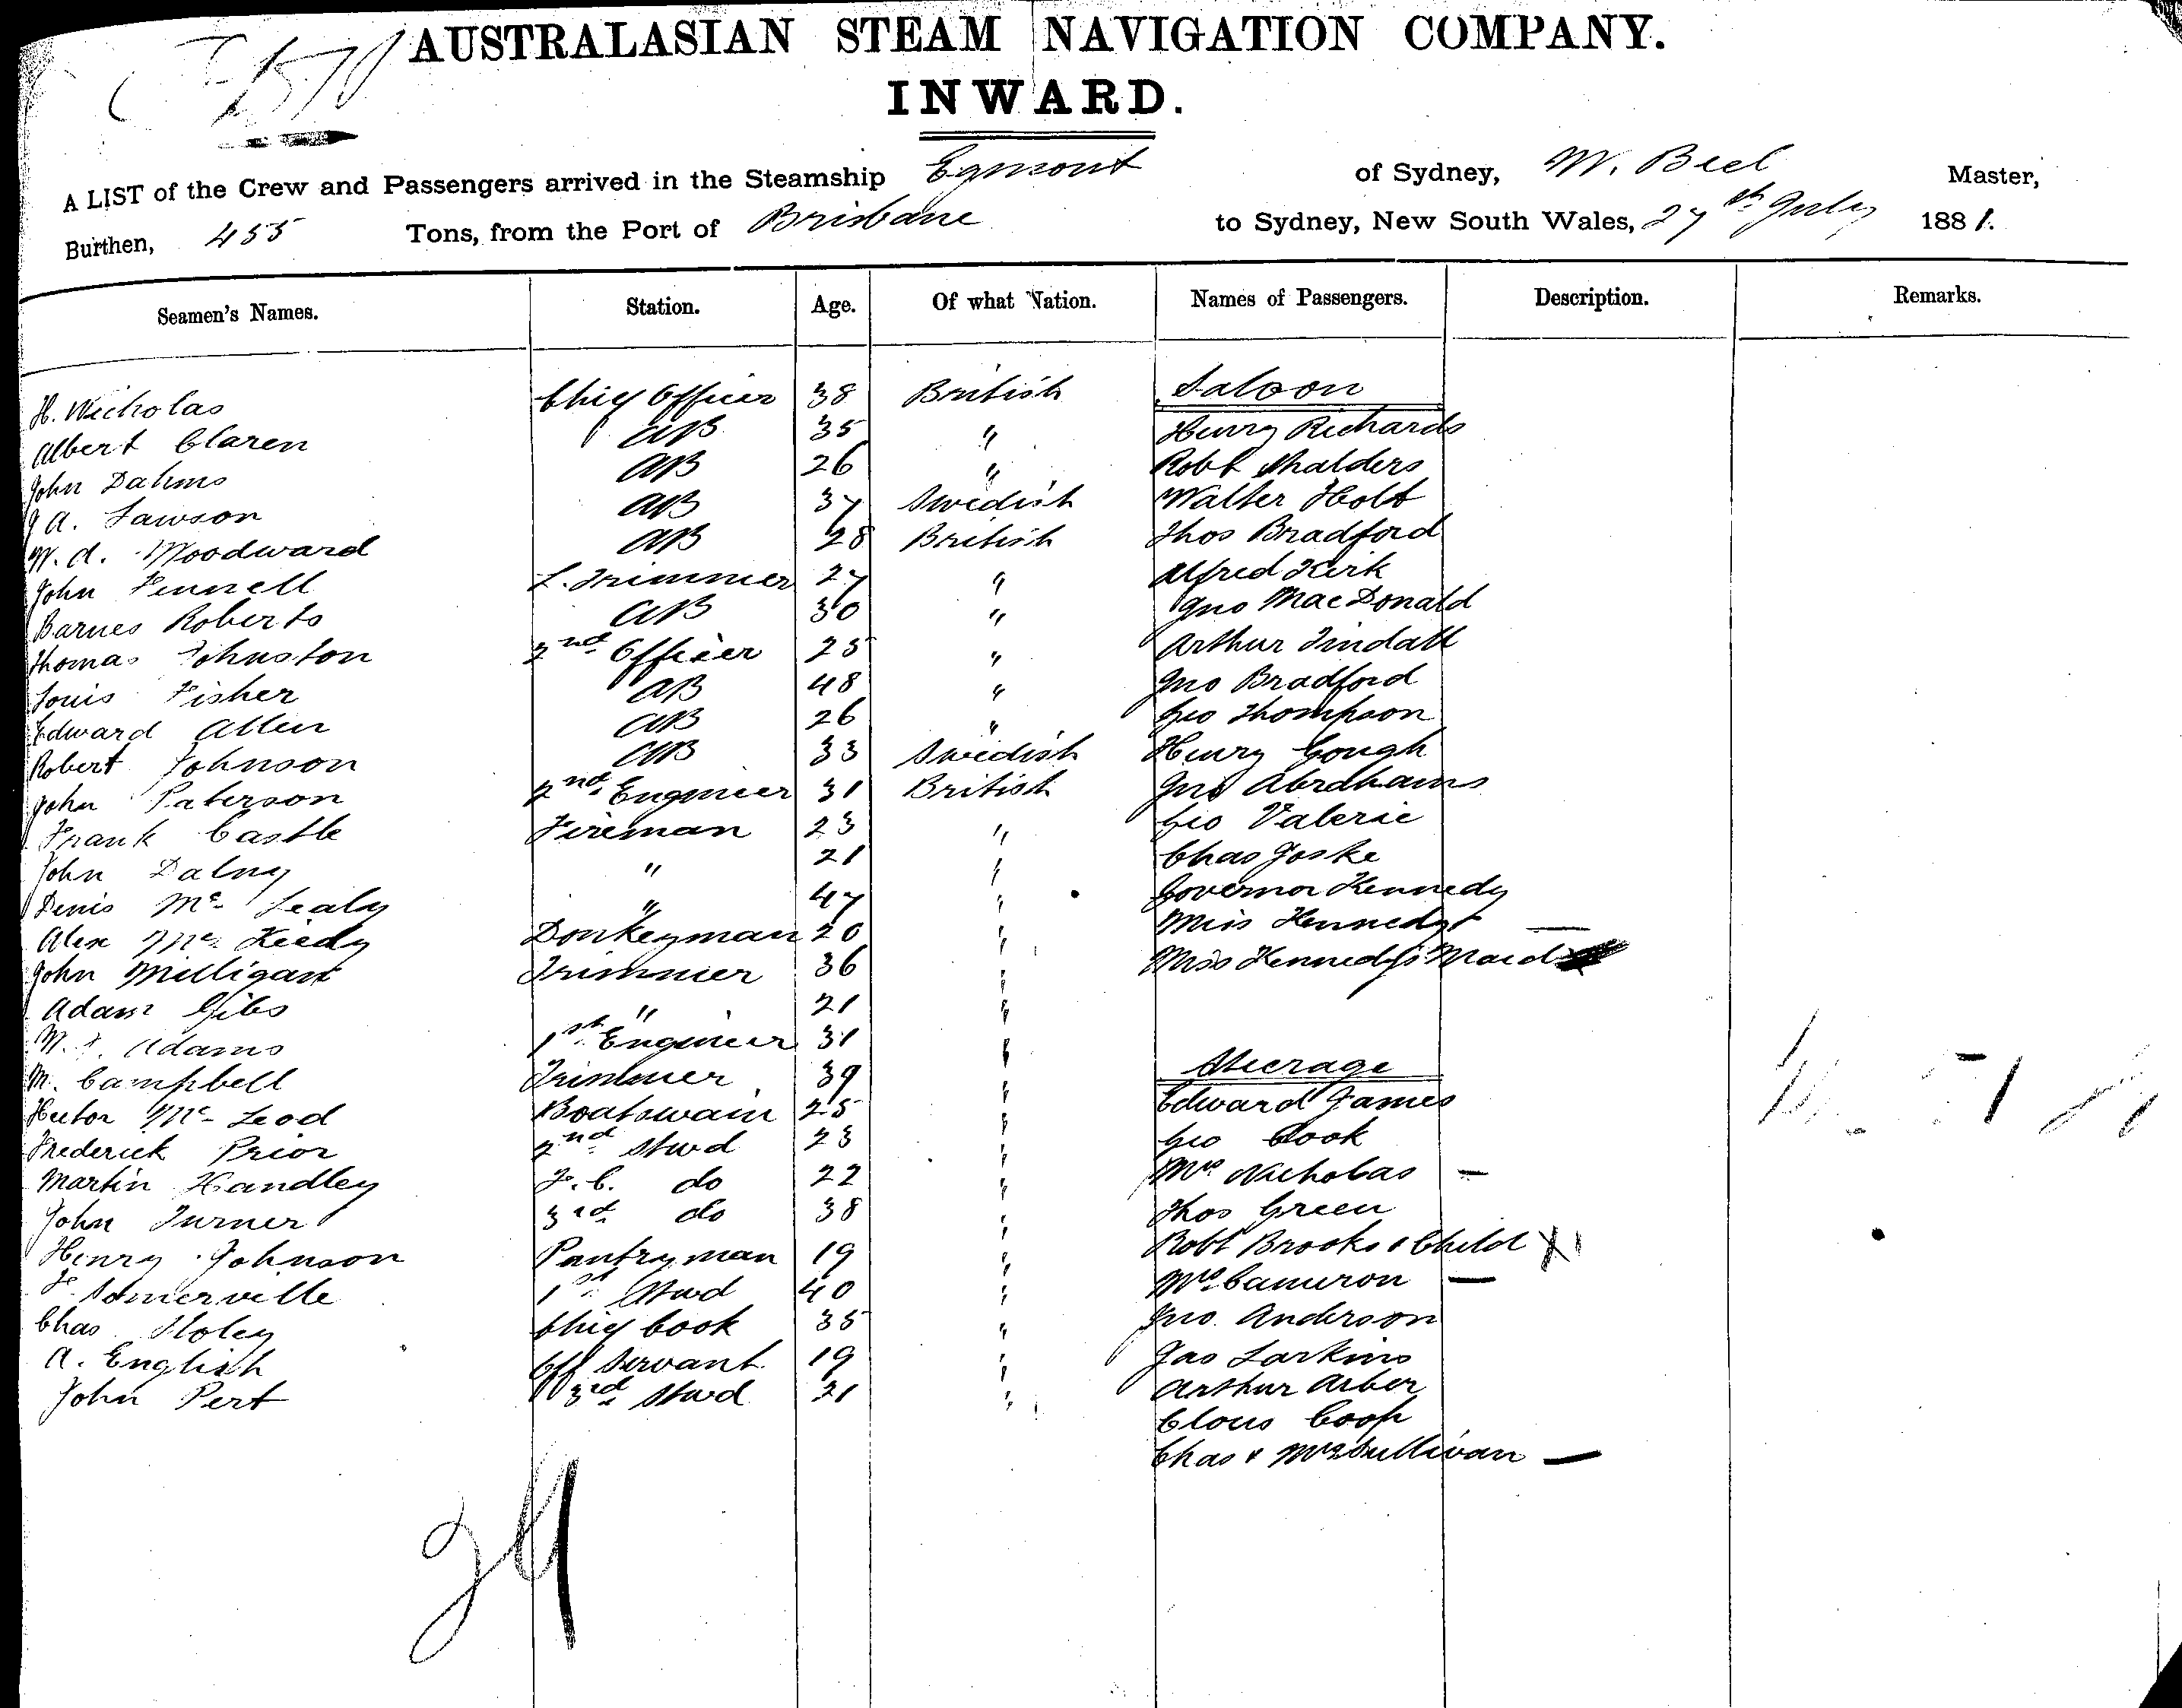 AUSTRALASIAN STEAM NAVIGATION COMPANY.
INWARD.
A LIST of the Crew and Passengers arrived in the Steamship Egmont of Sydney, W. Beel Master,
Burthen, 455 Tons, from the Port of Brisbane to Sydney, New South Wales, 27th July 1881.
Seamen's Names. Station. Age. Of what Nation. Names of Passengers. Description. Remarks.
H. Nicholas Chief Officer 38 British Saloon
Albert Claren AB 35 " Henry Richards
John Dahms AB 26 " Robt Shalders
J A. Lawson AB 37 Swedish Walter Holt
W. A. Woodward AB 28 British Thos Bradford
John Fennell L. Trimmer 27 " Alfred Kirk
Barnes Roberts AB 30 " Jno MacDonald
Thomas Johnston 2nd Officer 25 " Arthur Tindall
Louis Fisher AB 48 " Jno Bradford
Edward Allen AB 26 " Geo Thompson
Robert Johnson AB 33 Swedish Henry Gough
John Paterson 2nd Engineer 31 British Jno Abrahams
Frank Castle Fireman 23 " Geo Valerie
John Dalny " 21 " Chas Joske
Denis Mc Lealy " 47 " Governor Kennedy
Alex Mc Keedy Donkeyman 20 " Miss Kennedy —
John Milligan Trimmer 36 " Miss Kennedy's Maid
Adam Gibs " 21 "
M. Adams 1st Engineer 31 "
M. Campbell Trimmer 39 " Steerage
Hector Mc Leod Boatswain 25 " Edward James
Frederick Prior 2nd Stwd 23 " Geo Cook
Martin Handley F. C. do 22 " Mrs Nicholas —
John Turner 3rd do 38 " Thos Green
Henry Johnson Pantryman 19 " Robt Brooks & Child X 1
F Somerville 1st Stwd 40 " Mrs Cameron —
Chas Holey Chief Cook 35 " Jno. Anderson
A. English Off Servant 19 " Jas Larkins
John Pert 3rd Stwd 21 " Arthur Arber
Clous Coop
Chas & Mrs Sullivan —
29